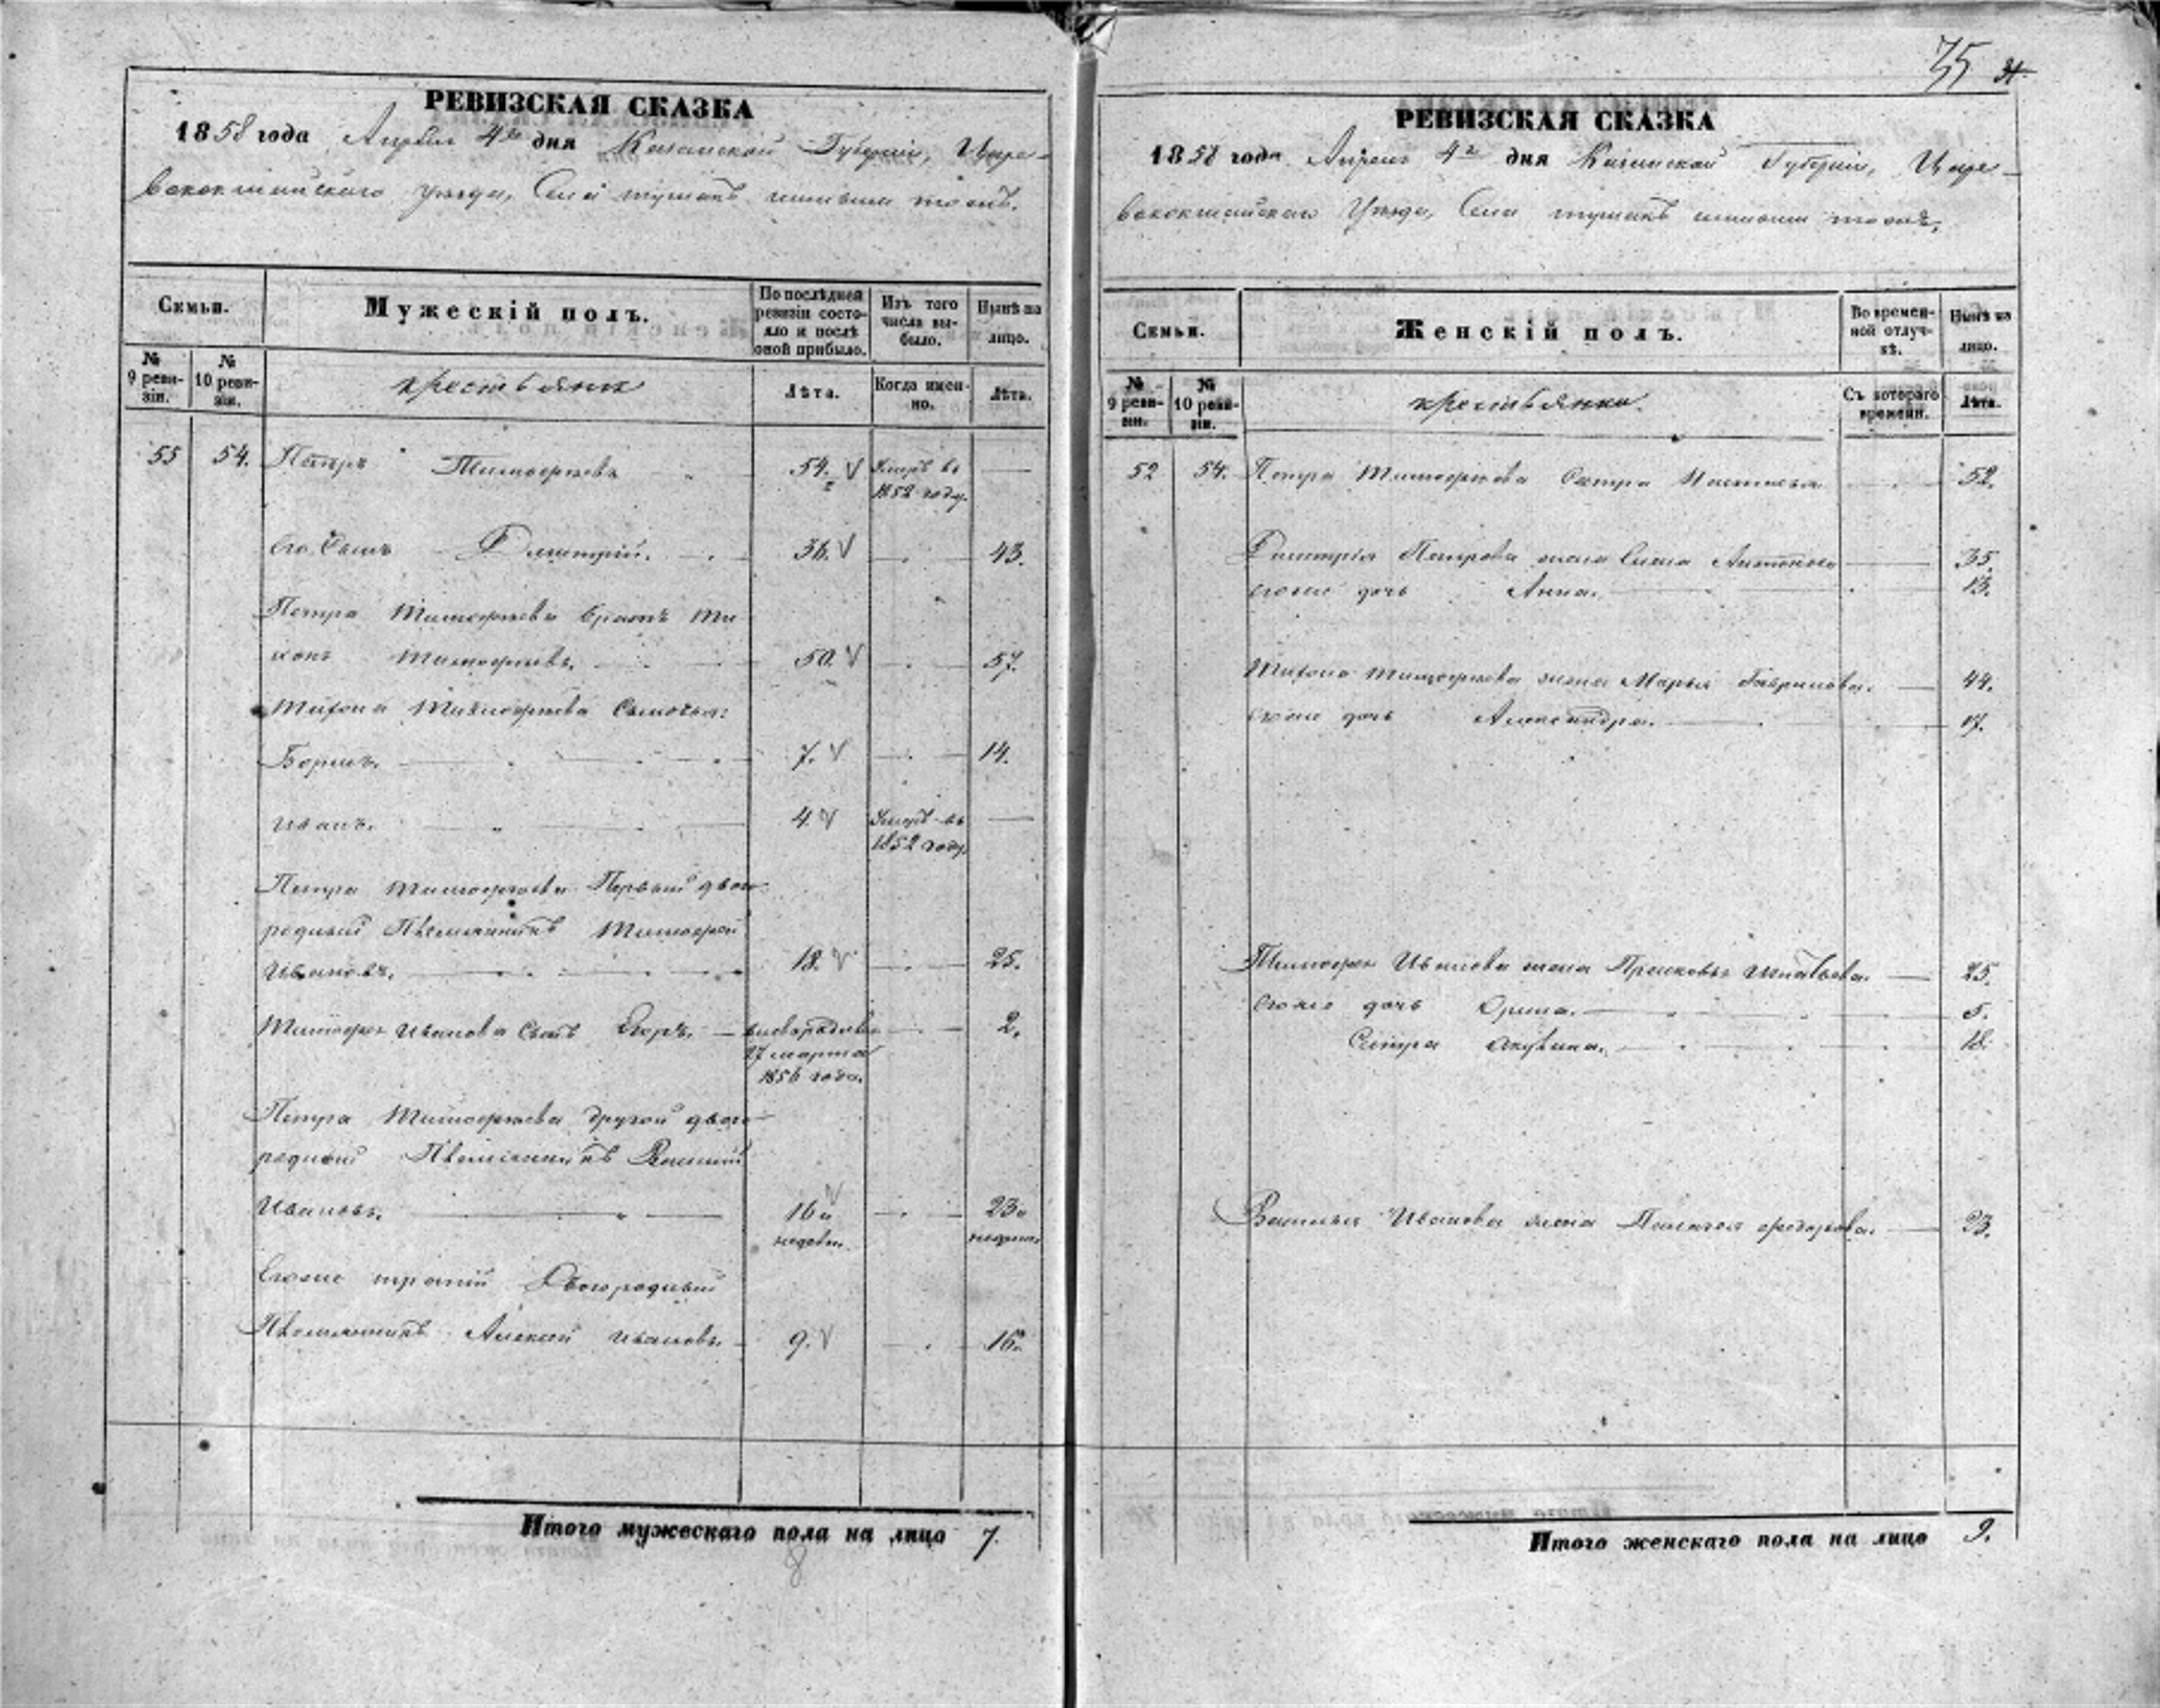 РЕВИЗСКАЯ СКАЗКА
1858 года Апреля 4го дня Казанской Губерніи, Царе-
вококшайскаго уѣзда, Села
Семьи.
Мужескій полъ.
По послѣдней ревизіи состояло и послѣ оной прибыло.
Изъ того числа выбыло.
Нынѣ на лицо.
№ 9 ревизіи.
№ 10 ревизіи.
крестьяне
Лѣта.
Когда именно.
Лѣта.
55 54. Петръ Тимофѣевъ 54. Умеръ въ
1852 году.
Его Сынъ Дмитрій. 36. 43.
Петра Тимофѣева братъ Ти
хонъ Тимофѣевъ. 50. 57.
Тихона Тимофѣева Сыновья:
Борисъ. 7. 14.
Иванъ. 4. Умеръ въ
1852 году.
Петра Тимофѣева Первый двою-
родный Племянникъ Тимофей
Ивановъ. 18. 25.
Тимофея Иванова Сынъ Егоръ. новорожден 2.
27 марта
1856 года.
Петра Тимофѣева другой двою-
родный Племянникъ Василий
Ивановъ. 16 23
Егоже третий Двоюродный
Племянникъ Алексей Ивановъ. 9. 16.
Итого мужескаго пола на лицо 7.
8
75
РЕВИЗСКАЯ СКАЗКА
1858 года Апреля 4го дня Казанской Губерніи, Царе-
вококшайскаго Уѣзда, Села
Семьи.
Женскій полъ.
Во временной отлучкѣ.
Нынѣ на лицо.
№ 9 ревизіи.
№ 10 ревизіи.
крестьянки.
Съ котораго времени.
Лѣта.
52 54. Петра Тимофѣева Сестра 52.
Дмитрія Петрова жена Елена Антонова 35.
егоже дочь Анна. 13.
Тихона Тимофѣева жена Марья Гаврилова. 44.
егоже дочь Александра. 17.
Тимофея Иванова жена Прасковья Игнатьева. 25.
Егоже дочь Орина. 5.
Сестра Акулина. 18.
Василья Иванова жена Пелагея Федорова. 23.
Итого женскаго пола на лицо 9.